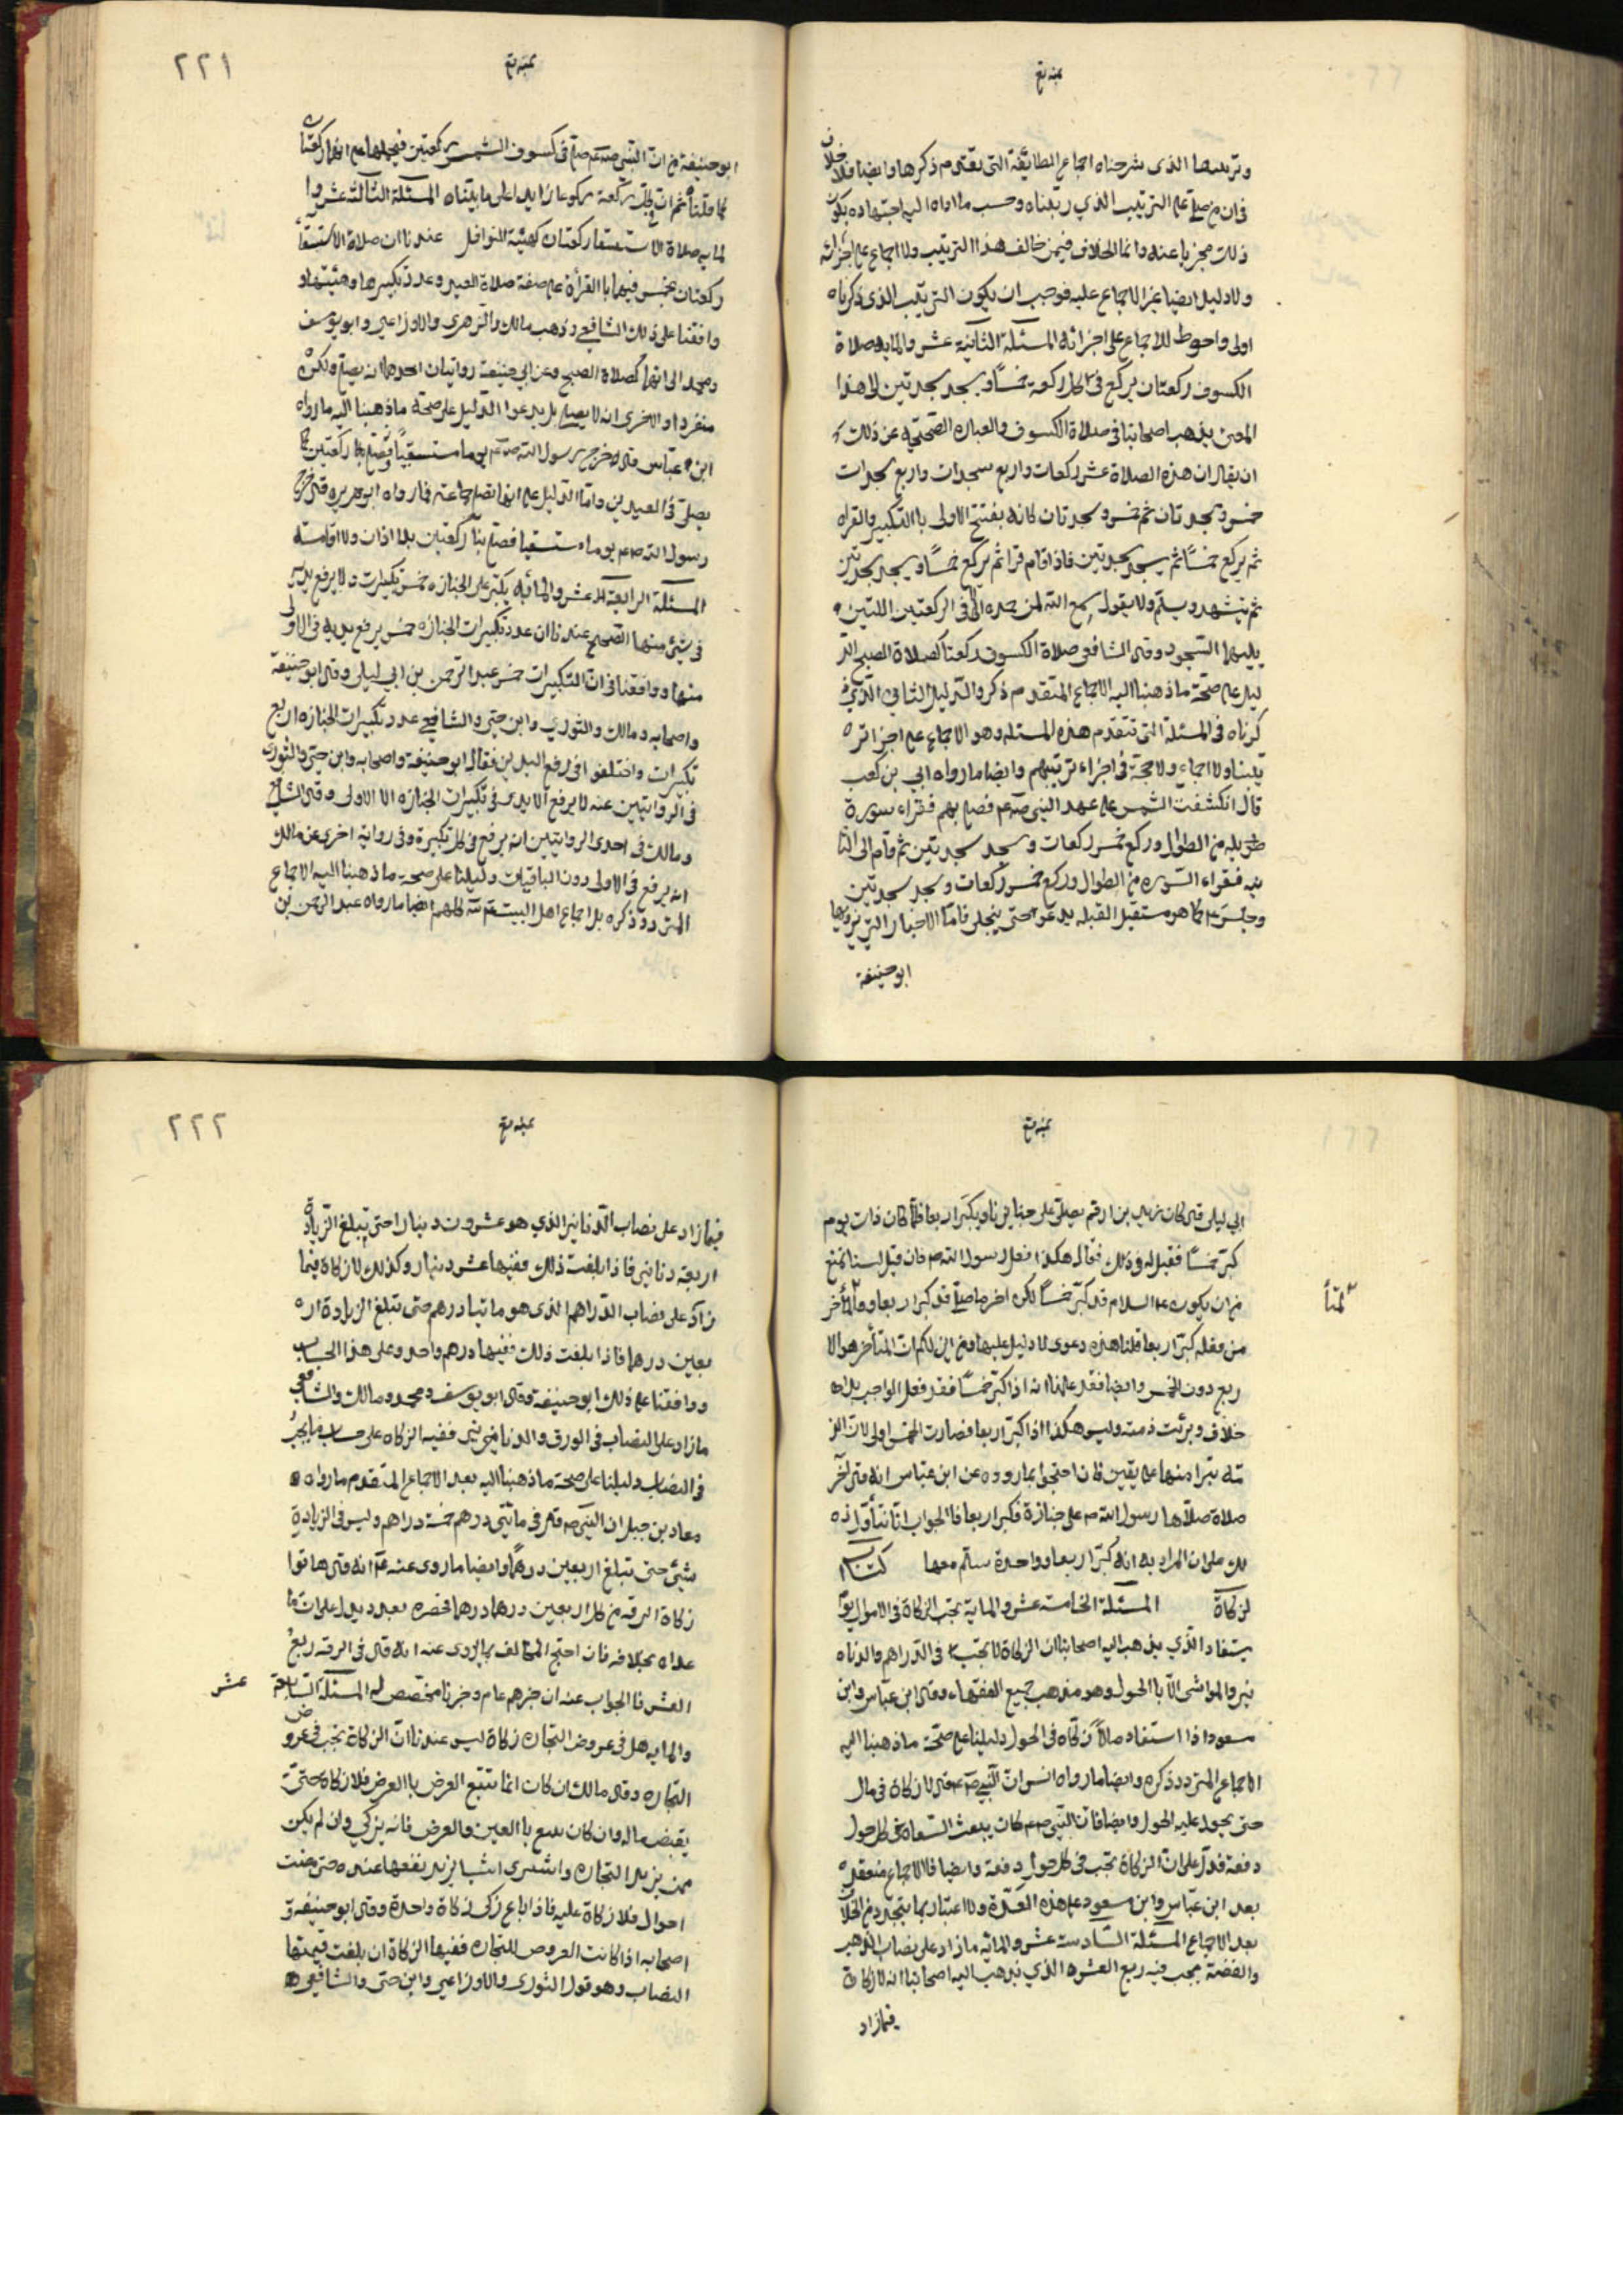 بمنه تع
وترتيبها الذي شرحناه اجماع الطائفة التي يقتدم ذكرها وايضا فلا خلاف
في ان من صلى على الترتيب الذي رتبناه وحسب ما اداه اليه اجتهاده يكون
ذلك مجزيا عنه وانما الخلاف فيمن خالف هذا الترتيب ولا اجماع على اجزائه
ولا دليل ايضا غير الاجماع عليه فوجب ان يكون الترتيب الذي ذكرناه
اولى واحوط للاجماع على اجزائه المسئلة الثانية عشر والمايه صلاة
الكسوف ركعتان يركع في كل ركعة خمسًا ويسجد سجدتين الى هذا
المعنى يذهب اصحابنا في صلاة الكسوف والعباره الصحيحه عن ذلك
ان يقال ان هذه الصلاة عشر ركعات واربع سجدات واربع سجدات
خمس وسجدتان ثم خمس وسجدتان لانه يفتتح الاولى باالتكبير والقراه
ثم يركع خمسًا ثم يسجد سجدتين فاذا قام قرا ثم يركع خمسًا ويسجد سجدتين
ثم يتشهد ويسلم ولا يقول سمع الله لمن حمده الا في الركعتين اللتين
يليهما السجود وقال الشافعي صلاة الكسوف ركعتا كصلاة الصبح الد
ليل على صحة ما ذهبنا اليه الاجماع المتقدم ذكر والدليل الثاني الذي ذ
كرناه في المسئلة التي تتقدم هذه المسئله وهو الاجماع على اجزا ترہ
تيبنا ولا اجماع ولا حجة في اجزاء ترتيبهم وايضا ما رواه ابي بن كعب
قال انكشفت الشمس على عهد النبي صلعم فصلى بهم فقراء سورة
طويله من الطوال وركع خمس ركعات وسجد سجدتين ثم قام الى الثا
نيه فقراء السوره من الطوال وركع خمس ركعات وسجد سجدتين
وجلس كما هو مستقبل القبله يدعو حتى ينجلى فاما الاخبار التي يرويها
ابو حنيفة
٢٢١
بمنه تع
ابو حنيفة من ان النبي صلعم صلى في كسوف الشمس ركعتين فيحملها على انهما ركعتا
كما قلنا ثم ان في كل ركعة ركوعا زايدا على ما بيناه المسئلة الثالثة عشر وا
لمايه صلاة الاستسقا ركعتان كهيئة النوافل عندنا ان صلاة الاستسقا
ركعتان يجهر فيهما باالقرأة على صفة صلاة العيد وعدد تكبيرها وهيئتها و
وافقنا على ذلك الشافعي وذهب مالك والزهري والاوزاعي وابو يوسف
ومحمد الى انها كصلاة الصبح وعن ابي حنيفة روايتان احدهما انه يصلي ولكن
منفردا والاخرى انه لا يصلي بل يدعوا الدليل على صحة ما ذهبنا اليه ما رواه
ابن عباس قال خرج رسول الله صلعم يوما مستسقيًا فصلى بنا ركعتين كما
يصلى في العيدين واما الدليل على انها تصلى جماعة فما رواه ابو هريره قال خرج
رسول الله صلعم يوما مستسقيا فصلى بنا ركعتين بلا اذان ولا اقامته
المسئلة الرابعة عشر والمائه يكبر على الجنازه خمس تكبيرات ولا يرفع يديه
في شئ منها الصحيح عندنا ان عدد تكبيرات الجنازه خمس يرفع يديه في الاولى
منها ووافقنا في ان التكبيرات خمس عبد الرحمن بن ابي ليلى وقال ابو حنيفة
واصحابه ومالك والثوري وابن حيى والشافعي عدد تكبيرات الجنازه اربع
تكبيرات واختلفوا في رفع اليدين فقال ابو حنيفة واصحابه وابن حيى والثوري
في الروايتين عنه لا يرفع الايدى في تكبيرات الجنازه الا الاولى وقال الشافعي
ومالك في احدى الروايتين انه يرفع في كل تكبيرة وفي رواية اخرى عن مالك
انه يرفع في الاولى دون الباقيات دليلنا على صحة ما ذهبنا اليه الاجماع
المتردد ذكره بل اجماع اهل البيت كلهم ايضا ما رواه عبد الرحمن بن
بمنه تع
ابي ليلى قال كان زيد بن ارقم يصلى على جنايزنا ويكبر اربعا فلما كان ذات يوم
كبر خمسًا فقيل له في ذلك فقال هكذا فعل رسول الله صم فان قيل لسنا نمنع
من ان يكون عليه السلام قد كبر خمسًا لكن اخر ما صلى قد كبر اربعا والمتأخر
من فعله كبر اربعا قلنا هذه دعوى لا دليل عليها ومن اين لكم ان المتأخر هو الا
ربع دون الخمس وايضا فقد علمنا انه اذا كبر خمسًا فقد فعل الواجب بلا
خلاف وبرئت ذمته وليس هكذا اذا كبر اربعا فصارت الخمس اولى لان الذ
مّه تبرا منها على يقين فان احتجوا بما رووه عن ابن عباس انه قال آخر
صلاة صلاها رسول الله صم على جنازة فكبر اربعا فالجواب انا نتأول
ذلك على ان المراد به انه كبر اربعا وواحدة سلم معها كتاب ا
لزكاة المسئلة الخامسة عشر والمايه تجب الزكاة في الاموال يو
يستفاد الذي يذهب اليه اصحابنا ان الزكاة لا تجب في الدراهم والدنا
نير والمواشى الا باالحول وهو مذهب جميع الفقهاء وقال ابن عباس وابن
مسعود اذا استفاد مالاً زكاه في الحول دليلنا على صحة ما ذهبنا اليه
الاجماع المتردد ذكره وايضا ما رواه انس ان النبي صلعم قال لا زكاة في مال
حتى يحول عليه الحول وايضا فان النبي صلعم كان يبعث السعاة في كل حول
دفعة فدل على ان الزكاة تجب في كل حول دفعة وايضا فالاجماع منعقد
بعد ابن عباس وابن مسعود على هذه العدة ولا اعتبار بما يتجدد من الخلاف
بعد الاجماع المسئلة السادسة عشر والمائه ما زاد على نصاب الذهب
والفضة يجب فيه ربع العشر الذي يذهب اليه اصحابنا انه لا زكاة
فيما زاد
٢٢٢
بمنه تع
فيما زاد على نصاب الدنانير الذي هو عشرون دينارا حتى تبلغ الزيادة
اربعة دنانير فاذا بلغت ذلك ففيها عشر دينار وكذلك لا زكاة فيما
زاد على نصاب الدراهم الذي هو مائتا درهم حتى تبلغ الزيادة ار
بعين درهما فاذا بلغت ذلك ففيها درهم واحد وعلى هذا الحساب
ووافقنا على ذلك ابو حنيفة وقال ابو يوسف ومحمد ومالك والشافعي
ما زاد على النصاب في الورق والدنانير ففيه الزكاه على حساب ما يجب
في النصاب دليلنا على صحة ما ذهبنا اليه بعد الاجماع المتقدم ما رواه
معاد بن جبل ان النبي صم قال في مائتي درهم خمسة دراهم وليس في الزيادة
شئ حتى تبلغ اربعين درهمًا وايضا ما روى عنه انه قال هاتوا
زكاة الرقه من كل اربعين درهما درهما فخصره بعدد يدل على ان ما
عداه بخلافه فان احتج المخالف بما روى عنه انه قال في الرقه ربع
العشر فا الجواب عنه ان خبرهم عام وخبرنا مخصص له المسئلة السابعة عشر
والمايه هل في عروض التجاره زكاة ليس عندنا ان الزكاة تجب في عروض
التجاره وقال مالك ان كان انما تتبع العرض باالعرض فلا زكاة حتى
يقبض ماله وان كان يبيع باالعين والعرض فانه يزكي وان لم يكن
ممن يريد التجاره واشترى اشيا يريد نفعها عنده حتى مضت
احوال فلا زكاة عليه فاذا باع زكى زكاة واحدة وقال ابو حنيفه و
اصحابه اذا كانت العروض للتجاره ففيها الزكاة ان بلغت قيمتها
النصاب وهو قول الثوري والاوزاعي وابن حيى والشافعي